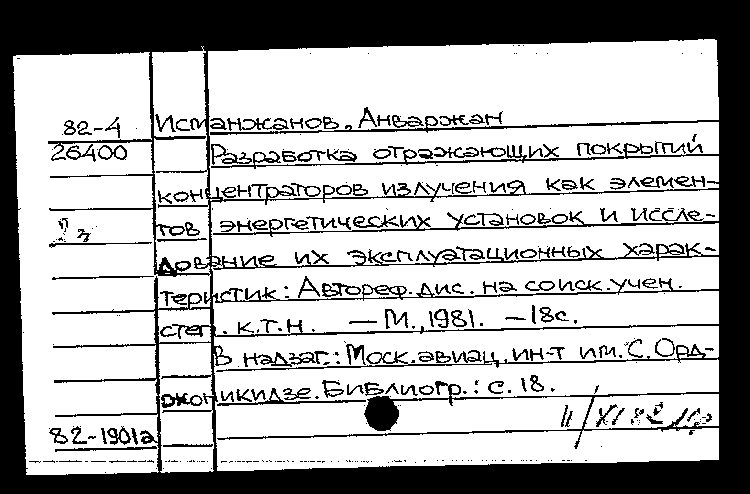 82-4 Исманжанов, Анваржан
26400 Разработка отражающих покрытий
концентраторов излучения как элемен-
2э тов энергетических установок и иссле-
дование их эксплуатационных харак-
теристик: Автореф. дис. на соиск. учен.
степ. к.т.н. — М., 1981. — 18с.
В надзаг.: Моск. авиац. ин-т им. С. Орд-
жоникидзе. Библиогр.: с. 18.
82-1901а II/XI 82